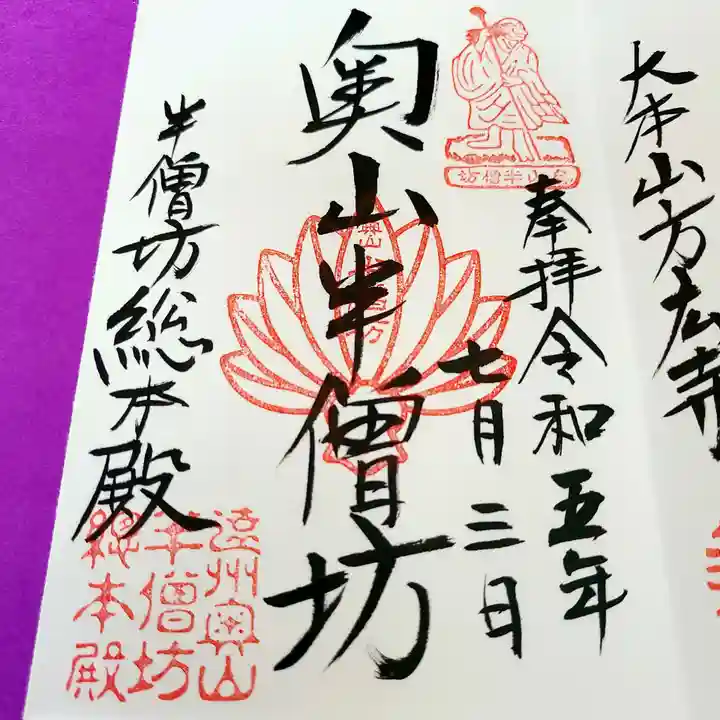 大本山方広寺
奉拝令和五年
七月三日
奥山半僧坊
半僧坊総本殿
奥山半僧坊
遠州奥山
半僧坊
總本殿